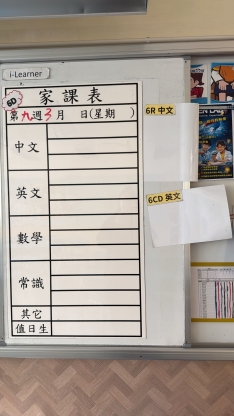 i-Learner
家課表
第九週3月 日(星期 )
6R 中文
中文
英文
6CD 英文
數學
常識
其它
值日生